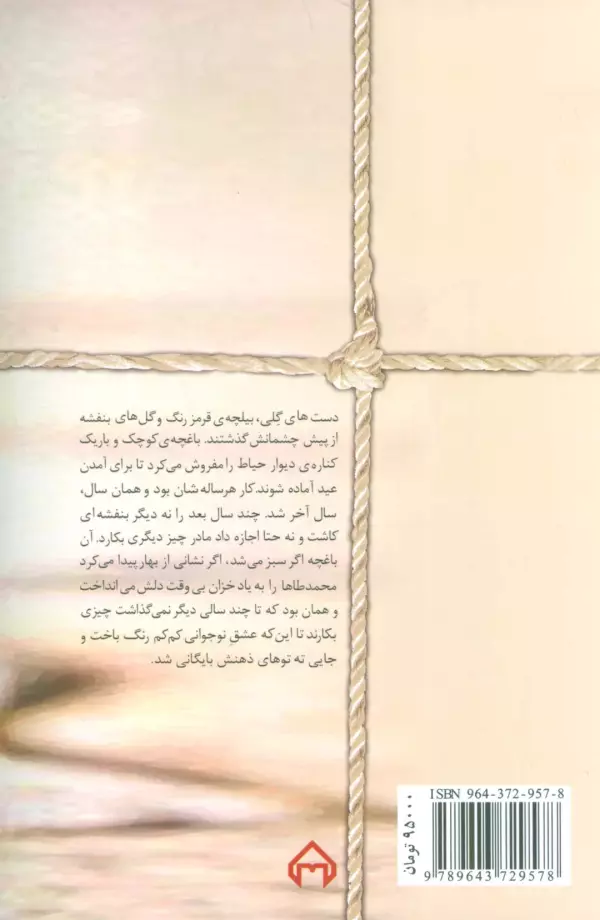 دست های گِلی، بیلچه‌ی قرمز رنگ و گل های بنفشه
از پیش چشمانش گذشتند. باغچه‌ی کوچک و باریک
کناره‌ی دیوار حیاط را مفروش می‌کرد تا برای آمدن
عید آماده شوند. کار هرساله شان بود و همان سال،
سال آخر شد. چند سال بعد را نه دیگر بنفشه ای
کاشت و نه حتا اجازه داد مادر چیز دیگری بکارد. آن
باغچه اگر سبز می‌شد، اگر نشانی از بهار پیدا می‌کرد
محمدطاها را به یاد خزان بی وقت دلش می انداخت
و همان بود که تا چند سالی دیگر نمی‌گذاشت چیزی
بکارند تا این‌که عشقِ نوجوانی کم‌کم رنگ باخت و
جایی ته توهای ذهنش بایگانی شد.
ISBN 964-372-957-8
9 789643 729578
۹۵۰۰۰ تومان